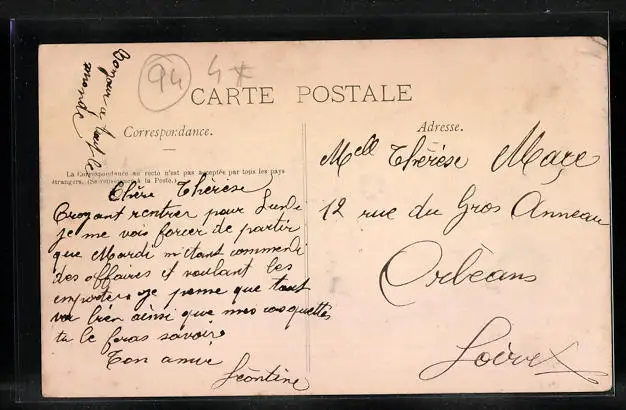 Bonjour à tout le
monde
94
4*
CARTE POSTALE
Correspondance.
Adresse.
La Correspondance au recto n'est pas acceptée par tous les pays
étrangers. (Se renseigner à la Poste.)
Chère Thérèse
Croyant rentrer pour Lundi
je me vois forcer de partir
que Mardi m'étant commendé
des affaires et voulant les
emporter je pense que tout
va bien ainsi que mes casquettes
tu le feras savoir
Ton amie
Léontine
Melle Thérèse Maçe
12 rue du Gros Anneau
Orléans
Loiret